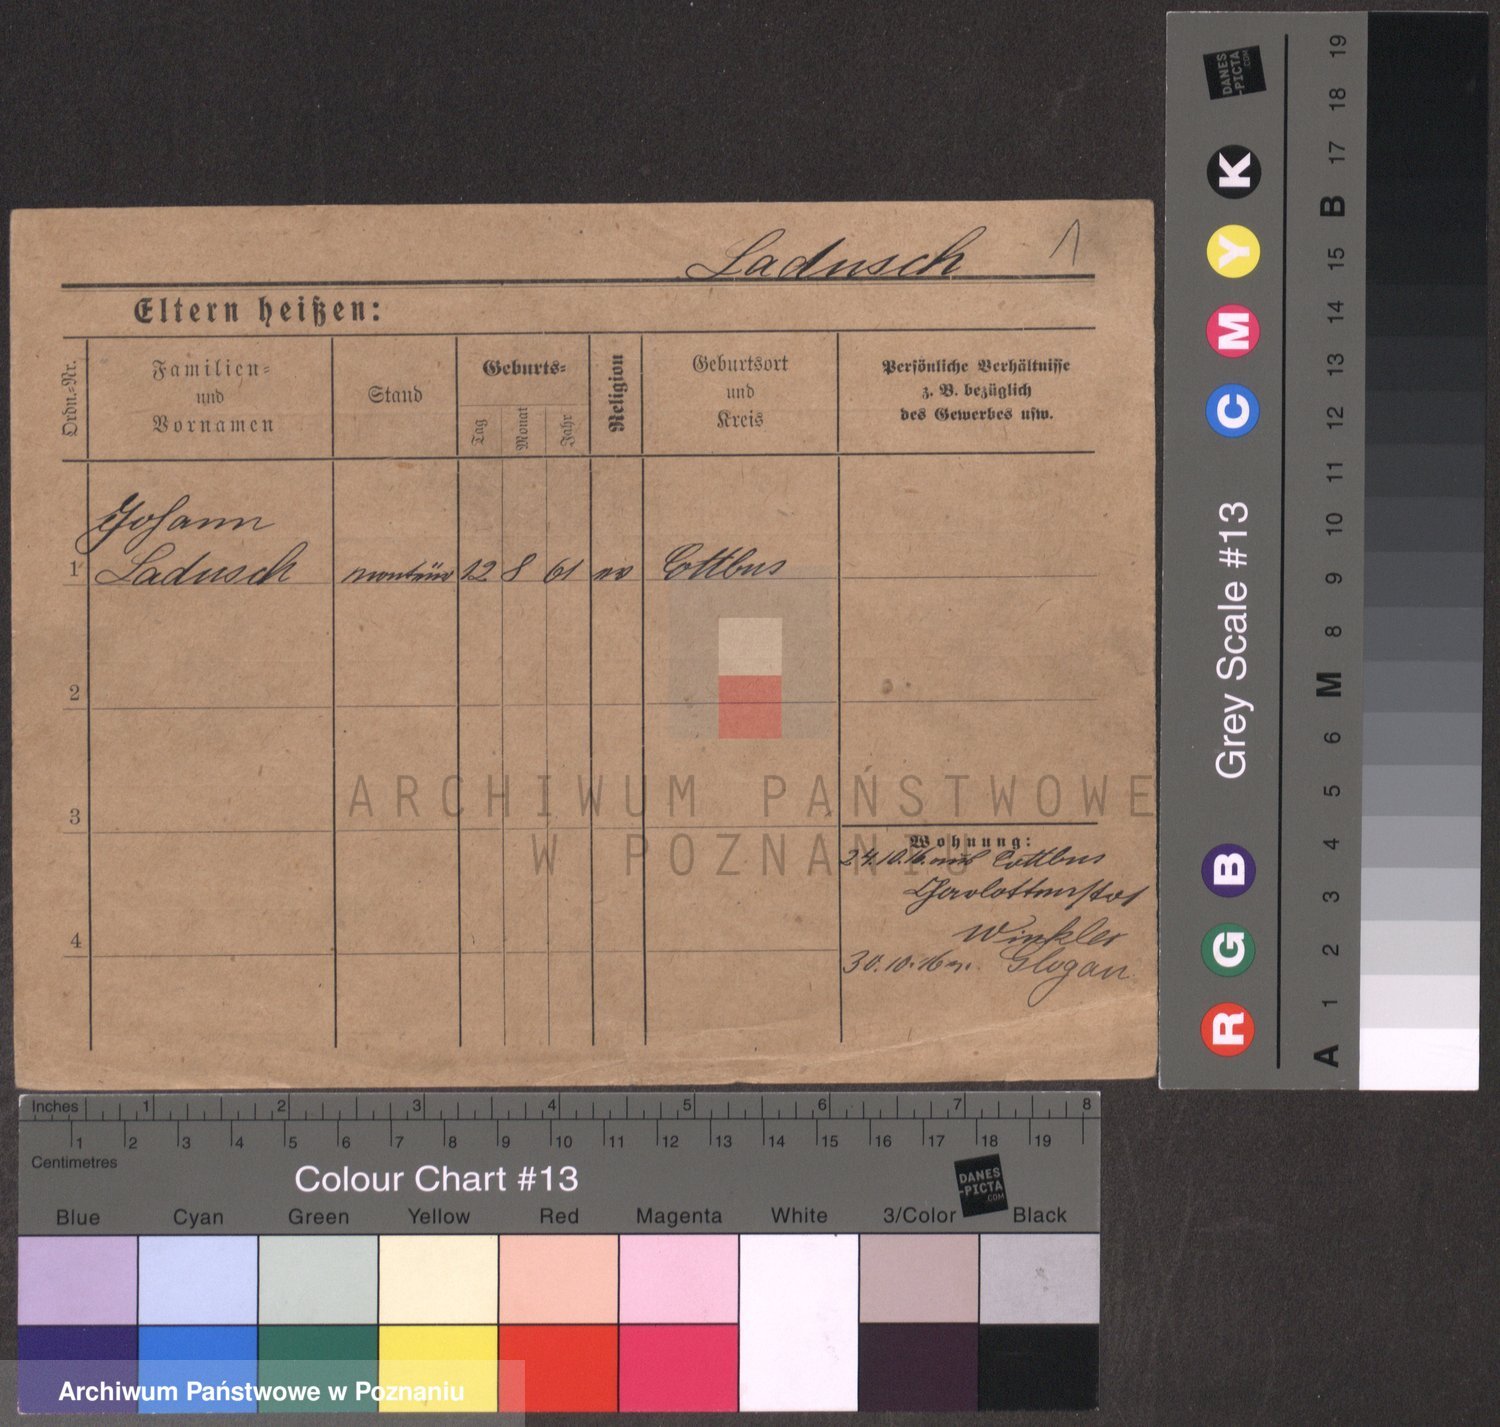 Ladusch
1
Eltern heißen:
Ordn.=Nr.
Familien=
und
Vornamen
Stand
Geburts=
Tag
Monat
Jahr
Religion
Geburtsort
und
Kreis
Persönliche Verhältnisse
z. B. bezüglich
des Gewerbes usw.
Johann
1 Ladusch 12 8 61 Cottbus
2
3
4
Wohnung:
24.10.16. aus Cottbus
Winkler
30.10.16 n. Glogau
ARCHIWUM PAŃSTWOWE
W POZNANIU
Inches 1 2 3 4 5 6 7 8
1 2 3 4 5 6 7 8 9 10 11 12 13 14 15 16 17 18 19
Centimetres
Colour Chart #13
DANES
-PICTA
.COM
Blue Cyan Green Yellow Red Magenta White 3/Color Black
Archiwum Państwowe w Poznaniu
DANES
-PICTA
.COM
R G B Grey Scale #13 C M Y K
A 1 2 3 4 5 6 M 8 9 10 11 12 13 14 15 B 17 18 19